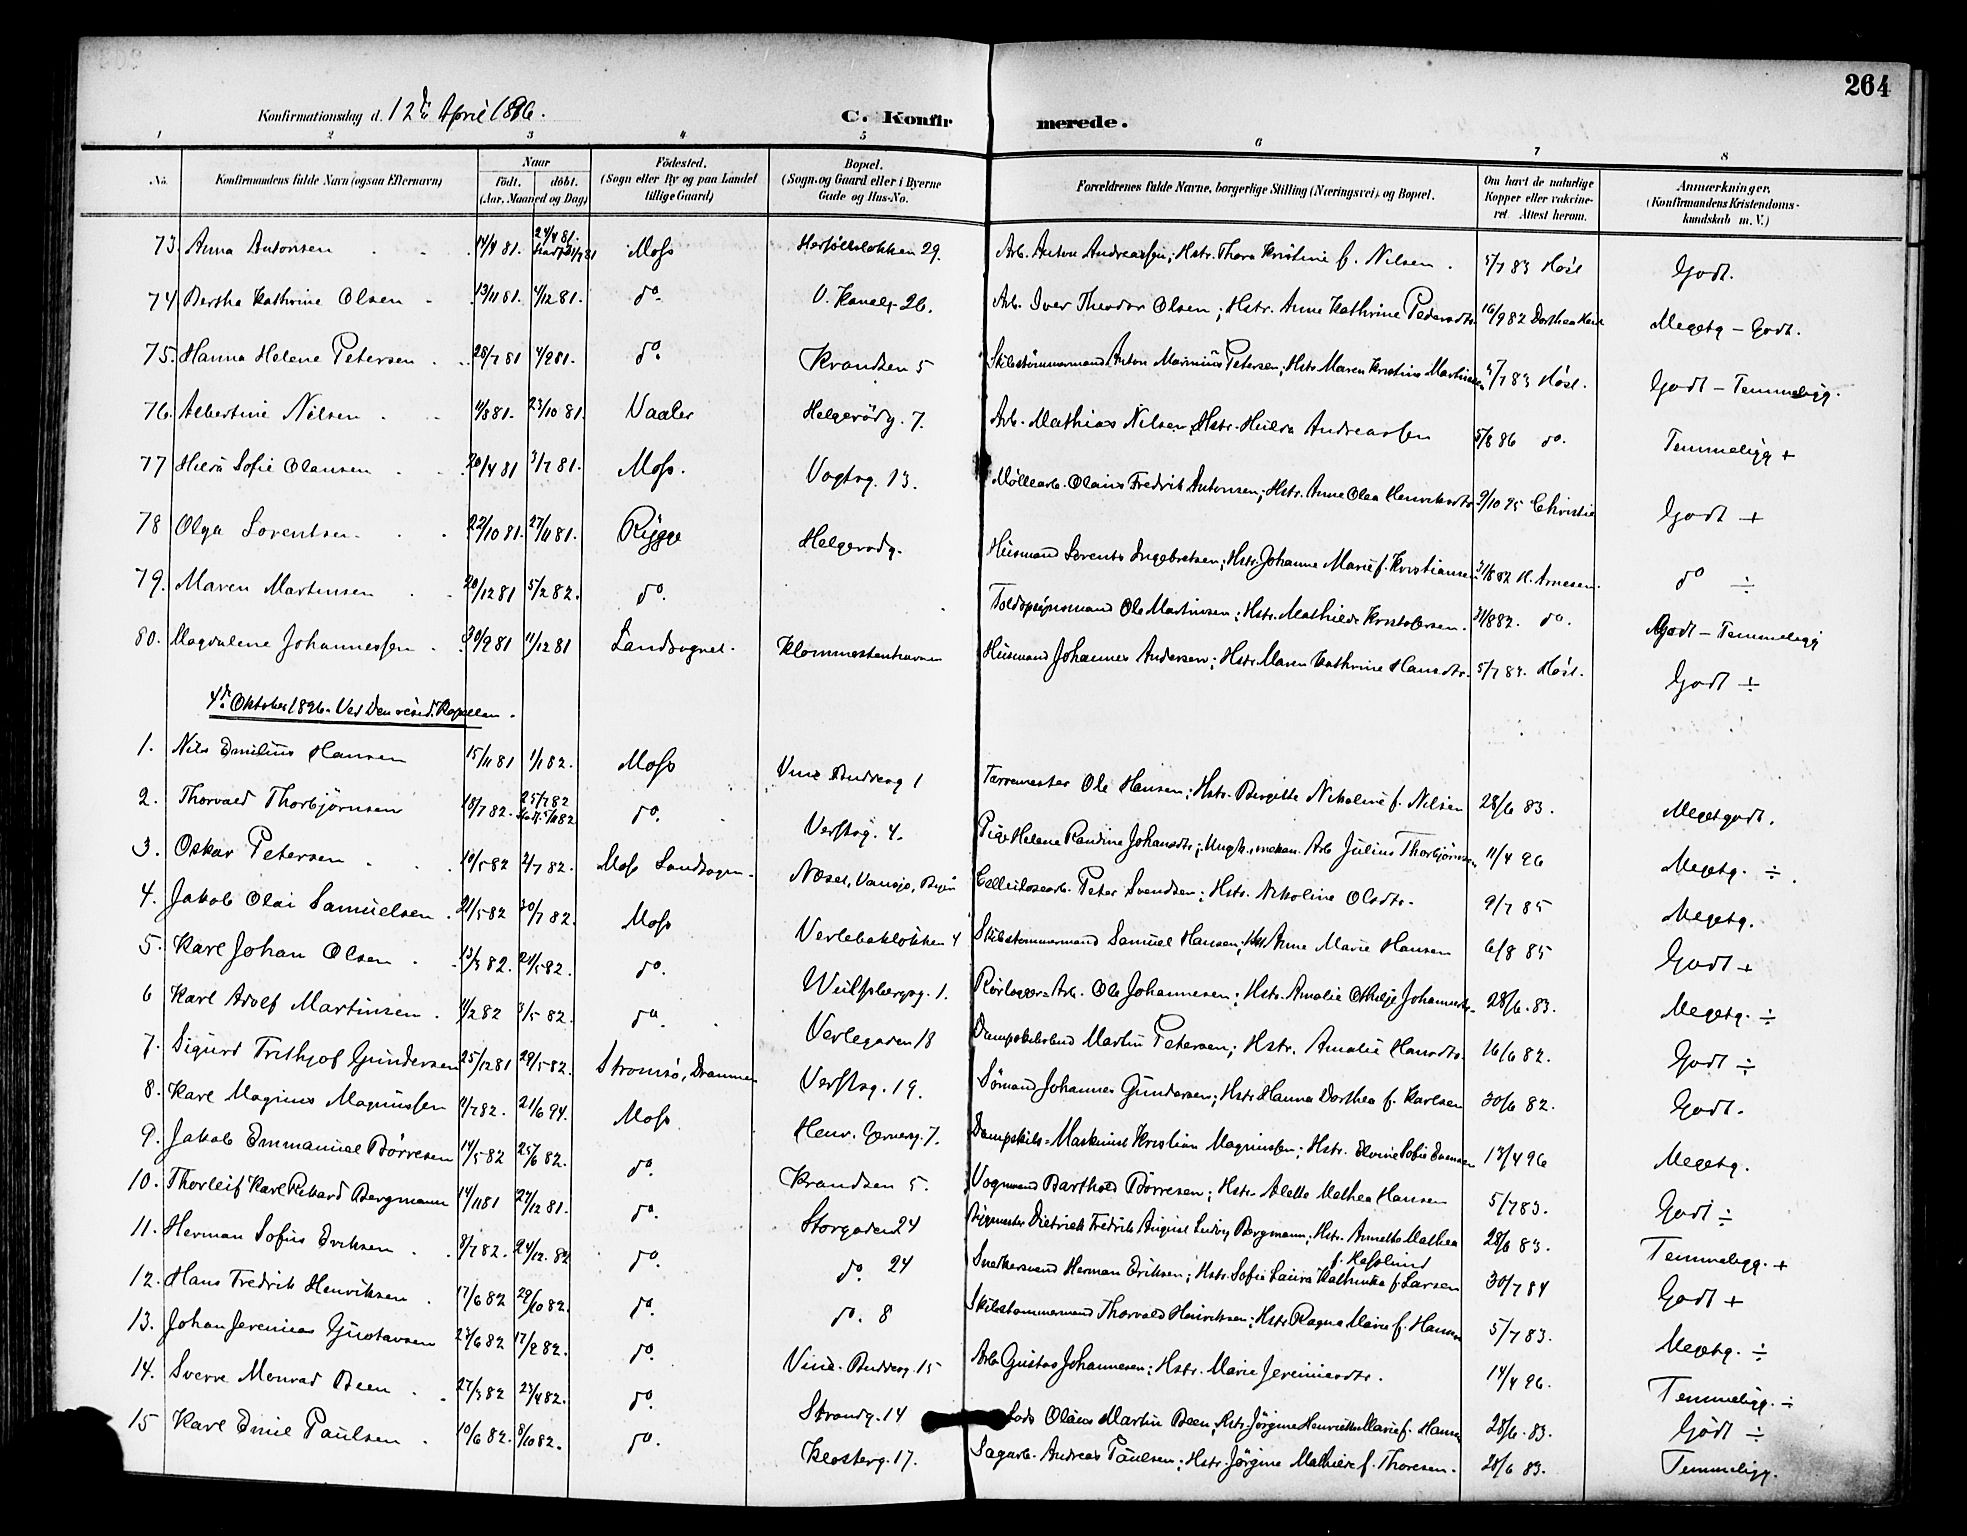 264
Konfirmationsdag d. 12te April 1896.
C. Konfirmerede.
1 2 3 4 5 6 7 8
No. Konfirmandens fulde Navn (ogsaa Efternavn) Naar født. døbt. (Aar, Maaned og Dag) Fødested. (Sogn eller By og paa Landet tillige Gaard) Bopæl. (Sogn og Gaard eller i Byerne Gade og Hus-No. Forældrenes fulde Navne, borgerlige Stilling (Næringsvei) og Bopæl. Om havt de naturlige Kopper eller vakcineret. Attest herom. Anmærkninger. (Konfirmandens Kristendomskundskab m. V.)
73. Anna Antonsen 14/4 81. 24/4 81. Moss 29. Arb. Anton Andreassen; Hstr. Thora Kristine f. Nilsen. 5/7 83 Høst Godt.
74 Bertha Kathrine Olsen 13/11 81. 4/12 81. do. V. Kanalg. 26. Arb. Iver Theodor Olsen; Hstr. Anne Kathrine Pedersdtr. 16/9 82 Dorthea Megetg – Godt.
75. Hanna Helene Petersen 28/7 81 do. Krandsen 5 Skibstømmermand Anton Marinius Petersen; Hstr. Maren Kristine Martinsen 5/7 83 Høst. Godt – Temmeligg.
76. Albertine Nilsen 4/8 81. 23/10 81. Vaaler Helgerødg. 7. Arb. Mathias Nilsen, Hstr. Hulda Andreassen 5/8 86 do. Temmeligg +
77 Hilda Sofie Olausen 20/4 81 3/7 81. Moss. Vogtsg. 13. Møllearb. Olaus Fredrik Antonsen; Hstr. Anne Olea Henriksdtr. 9/10 95 Christie Godt +
78 Olga Lorentsen. 22/10 81. 27/11 81. Rygge Helgerødg. Husmand Lorents Ingebretsen; Hstr. Johanne Marie f. Kristiansen 31/8 82 K. Arnesen. do ÷
79. Maren Martinsen 20/12 81 5/2 82. do. Toldopsynsmand Ole Martinsen; Hstr. Mathilde Kristofersen. 31/8 82. do. Godt – Temmeligg
80. Magdalene Johannessen 30/9 81 11/12 81 Landsognet. Klommestenhavnen Husmand Johannes Andersen; Hstr. Maren Kathrine Hansdtr. 5/7 83. Høst. Godt ÷
4de Oktober 1896. Ved Den resid. Kapellan.
1. Nils Emilius Hansen 15/11 81 1/1 82. Moss Vinc. Buddesg 1 Farvemester Ole Hansen; Hstr. Birgitte Nikoline f. Nilsen 28/6 83. Megetgodt.
2. Thorvald Thorbjørnsen 18/7 82. 25/7 82 do. Verftsg. 4. Pige Helene Randine Johansdtr; Ungk., mekan. Arb Julius Thorbjørnsen 11/4 96 Megetg. ÷.
3. Oskar Petersen 10/5 82 2/7 82. Moss Landsogn. Næset, Vansjø, Cellulosearb. Peter Svendsen; Hstr. Nikoline Olsdtr. 9/7 85 Megetg.
4. Jakob Olai Samuelsen 21/5 82 30/7 82. Moss Verlebakløkken 4 Skibstømmermand Samuel Hansen; Anne Marie Hansen 6/8 85 Godt +
5. Karl Johan Olsen 13/3 82. 24/5 82. do. Wulfsbergsg. 1. Rørlægger-Arb. Ole Johannesen; Hstr. Amalie Othilje Johannesdtr. 28/6. 83. Megetg. ÷
6 Karl Adolf Martinsen /2 82 /5 82. do. Verlegaden 18 Dampskibsmand Martin Petersen; Hstr. Amalie Hansdtr. 16/6 82. Godt ÷
7. Sigurd Frithjof Gundersen 25/12 81 29/5 82. Strømsø, Drammen Verftsg. 19. Sømand Johannes Gundersen; Hstr. Hanna Dorthea f. Karlsen 30/6 82. Godt.
8. Karl Magnus Magnussen /7 82. 21/6 94. Moss Henr. Gernersg. 7. Dampskibs-Maskinist Kristian Magnussen; Hstr. Elvine Sofie Evensen 13/4 96 Megetg.
9. Jakob Emmanuel Børresen 14/5 82 25/6 82. do. Krandsen 5. Vognmand Barthold Børresen; Hstr. Alette Mathea Hansen 5/7 83. Godt ÷
10. Thorleif Karl Rikard Bergmann 14/11 81 27/12 81. do. Storgaden 24 Dietrich Fredrik August Ludvig Bergmann; Hstr. Annette Mathea f. Hesslund 28/6 83. Temmeligg. +
11. Herman Sofus Eriksen 8/7 82. 24/12. 82 do. do. 24 Snekkersvend Herman Eriksen; Hstr. Sofie Laura Kathinka f. Larsen 30/7 84 Godt +
12. Hans Fredrik Henriksen 17/6 82 29/10 82. do. do. 8 Skibstømmermand Thorvald Henriksen; Hstr. Ragna Marie f. Hansen 5/7 83. Megetg. ÷
13. Johan Jeremias Gustavsen 27/6 82 17/9 82. do. Vinc. Buddesg. 15 Arb. Gustav Johannesen; Hstr. Marie Jeremiasdtr. 14/4 96. Temmeligg. ÷
14. Sverre Monrad Been 27/3 82 23/4 82. do. Strandg. 14 Lods Olaus Martin Been; Hstr. Jørgine Henriette Marie f. Hansen 28/6. 83. Godt ÷
15 Karl Emil Paulsen 10/6 82. 8/10 82. do. Klosterg. 17. Sagarb. Andreas Paulsen; Hstr. Jørgine Mathilde f. Thoresen. 28/6 83. Temmeligg.